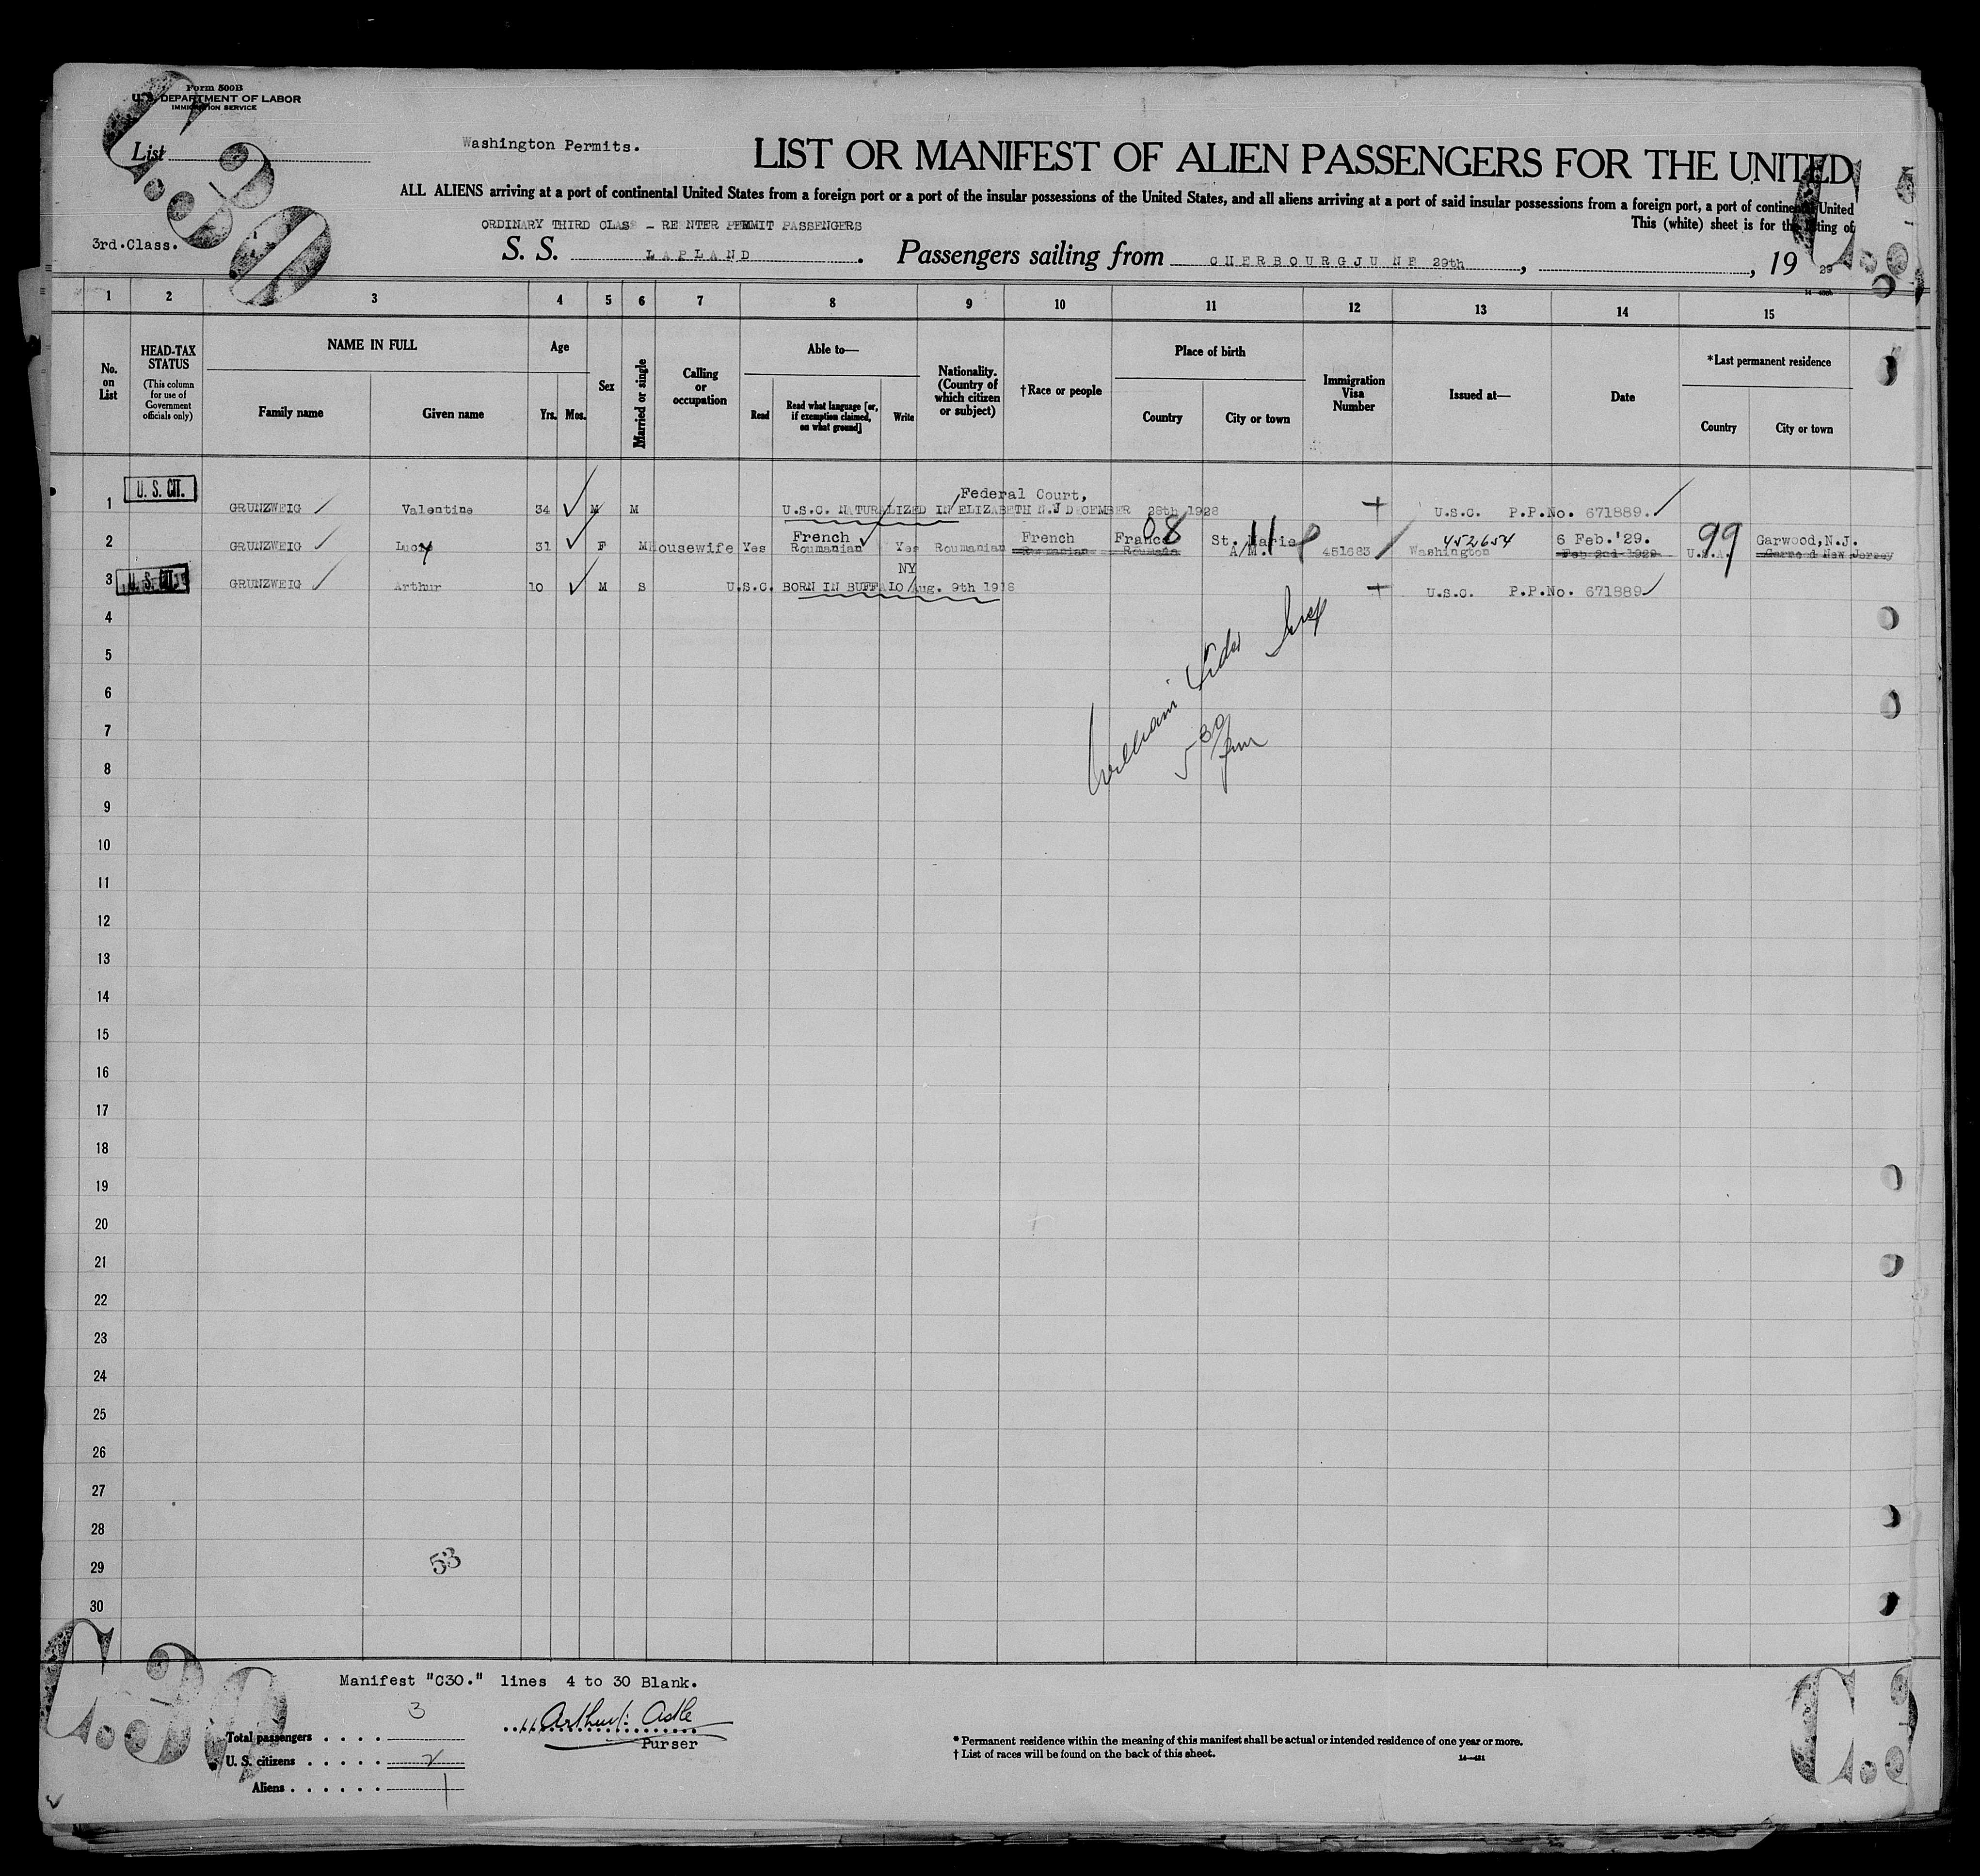 Form 500B
U. S. DEPARTMENT OF LABOR
IMMIGRATION SERVICE
C.30
List
Washington Permits.
LIST OR MANIFEST OF ALIEN PASSENGERS FOR THE UNITED
ALL ALIENS arriving at a port of continental United States from a foreign port or a port of the insular possessions of the United States, and all aliens arriving at a port of said insular possessions from a foreign port, a port of continental United
This (white) sheet is for the listing of
ORDINARY THIRD CLASS - RE NTER PERMIT PASSENGERS
3rd.Class.
S. S. LAPLAND. Passengers sailing from CHERBOURG JUNE 29th, , 19 29
1 2 3 4 5 6 7 8 9 10 11 12 13 14 15
No. on List
HEAD-TAX STATUS
(This column for use of Government officials only)
NAME IN FULL
Family name Given name
Age
Yrs. Mos.
Sex
Married or single
Calling or occupation
Able to—
Read Read what language [or, if exemption claimed, on what ground] Write
Nationality. (Country of which citizen or subject)
†Race or people
Place of birth
Country City or town
Immigration Visa Number
Issued at—
Date
*Last permanent residence
Country City or town
U. S. CIT.
Federal Court,
1 GRUNZWEIG Valentine 34 M M U.S.C. NATURALIZED IN ELIZABETH N.J DECEMBER 28th 1928 U.S.C. P.P.No. 671889.
French French France 08 St. Marie 11 452654 6 Feb.'29. 99 Garwood,N.J.
2 GRUNZWEIG Lucy 31 F M Housewife Yes Roumanian Yes Roumanian Roumanian Roumania A/M. 451683 Washington Feb 2nd 1929 U.S.A. Garwood New Jersey
NY
U. S. CIT.
3 GRUNZWEIG Arthur 10 M S U.S.C. BORN IN BUFFALO Aug. 9th 1918 U.S.C. P.P.No. 671889
4
5
6
William
7
5 30
8
9
10
11
12
13
14
15
16
17
18
19
20
21
22
23
24
25
26
27
28
29
53
30
C.30
Manifest "C30." lines 4 to 30 Blank.
Total passengers . . . . 3
Arthur Astle
Purser
U. S. citizens . . . . . 2
Aliens . . . . . . 1
* Permanent residence within the meaning of this manifest shall be actual or intended residence of one year or more.
† List of races will be found on the back of this sheet.
14—481
C.3